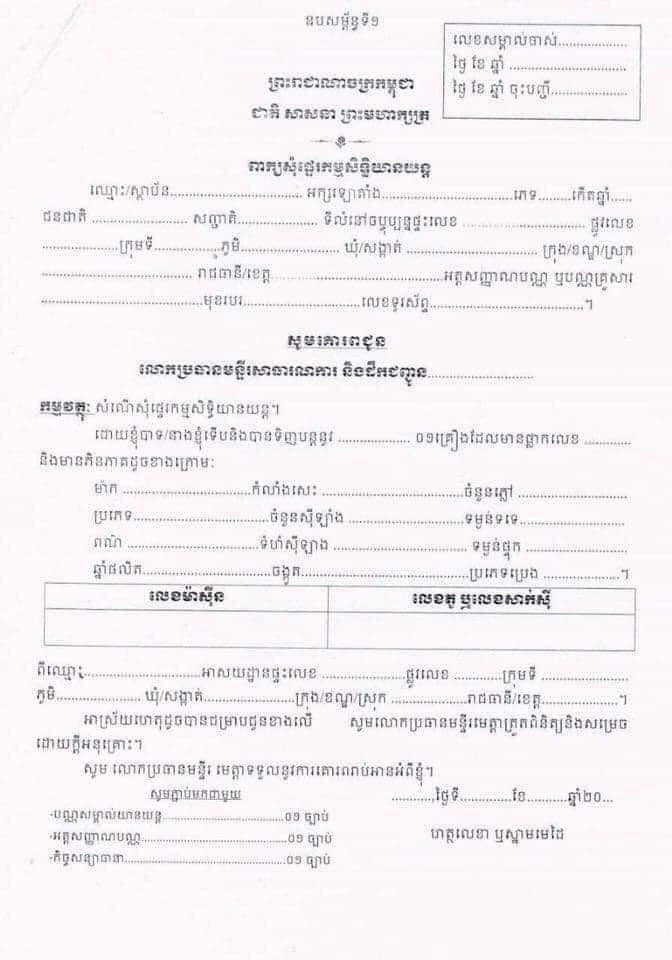 ឧបសម្ព័ន្ធទី១
លេខសម្គាល់ចាស់..................
ថ្ងៃ ខែ ឆ្នាំ ..............................
ថ្ងៃ ខែ ឆ្នាំ ចុះបញ្ជី...................
ព្រះរាជាណាចក្រកម្ពុជា
ជាតិ សាសនា ព្រះមហាក្សត្រ
ពាក្យសុំផ្ទេរកម្មសិទ្ធិយានយន្ត
ឈ្មោះ/ស្ថាប័ន................................. អក្សរឡាតាំង...................................ភេទ.........កើតឆ្នាំ......
ជនជាតិ ........................ សញ្ជាតិ.................... ទីលំនៅចប្ចុប្បន្នផ្ទះលេខ ................................ ផ្លូវលេខ
...................ក្រុមទី.................ភូមិ........................ ឃុំ/សង្កាត់ ................................. ក្រុង/ខណ្ឌ/ស្រុក
...................................... រាជធានី/ខេត្ត..........................................អត្តសញ្ញាណបណ្ណ ឬបណ្ណគ្រួសារ
........................................មុខរបរ....................................លេខទូរស័ព្ទ......................................។
សូមគោរពជូន
លោកប្រធានមន្ទីរសាធារណការ និងដឹកជញ្ជូន..........................
កម្មវត្ថុ: សំណើសុំផ្ទេរកម្មសិទ្ធិយានយន្ត។
ដោយខ្ញុំបាទ/នាងខ្ញុំទើបនឹងបានទិញបន្តនូវ .................. ០១គ្រឿងដែលមានផ្លាកលេខ ............
និងមានភិនភាគដូចខាងក្រោម:
ម៉ាក ................................កំលាំងសេះ ....................................ចំនួនភ្លៅ ...........................
ប្រភេទ..................................ចំនួនស៊ីឡាំង .............................ទម្ងន់ទទេ...........................
ពណ៌ ................................ទំហំស៊ីឡាង ................................. ទម្ងន់ផ្ទុក .........................
ឆ្នាំផលិត................................ចង្កូត..........................................ប្រភេទប្រេង ...................។
លេខម៉ាស៊ីន លេខតួ ឬលេខសាក់ស៊ី
ពីឈ្មោះ.............................អាសយដ្ឋានផ្ទះលេខ ......................ផ្លូវលេខ ............ក្រុមទី ......................
ភូមិ..................... ឃុំ/សង្កាត់.......................ក្រុង/ខណ្ឌ/ស្រុក ...................រាជធានី/ខេត្ត...................។
អាស្រ័យហេតុដូចបានជម្រាបជូនខាងលើ សូមលោកប្រធានមន្ទីរមេត្តាត្រួតពិនិត្យនិងសម្រេច
ដោយក្តីអនុគ្រោះ។
សូម លោកប្រធានមន្ទីរ មេត្តាទទួលនូវការគោរពរាប់អានអំពីខ្ញុំ។
សូមភ្ជាប់មកជាមួយ
-បណ្ណសម្គាល់យានយន្ត...............................០១ ច្បាប់
-អត្តសញ្ញាណបណ្ណ....................................០១ ច្បាប់
-កិច្ចសន្យាធានា........................................០១ ច្បាប់
..........,ថ្ងៃទី............ខែ...........ឆ្នាំ២០...
ហត្ថលេខា ឬស្នាមមេដៃ